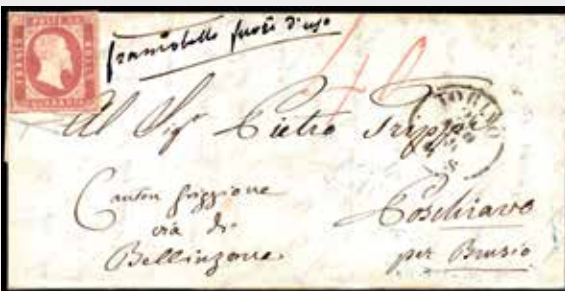 francobollo fuori d'uso
Al Sigr Pietro Trippi
Canton Griggione
via di
Bellinzona
Poschiavo
per Brusio
TORINO